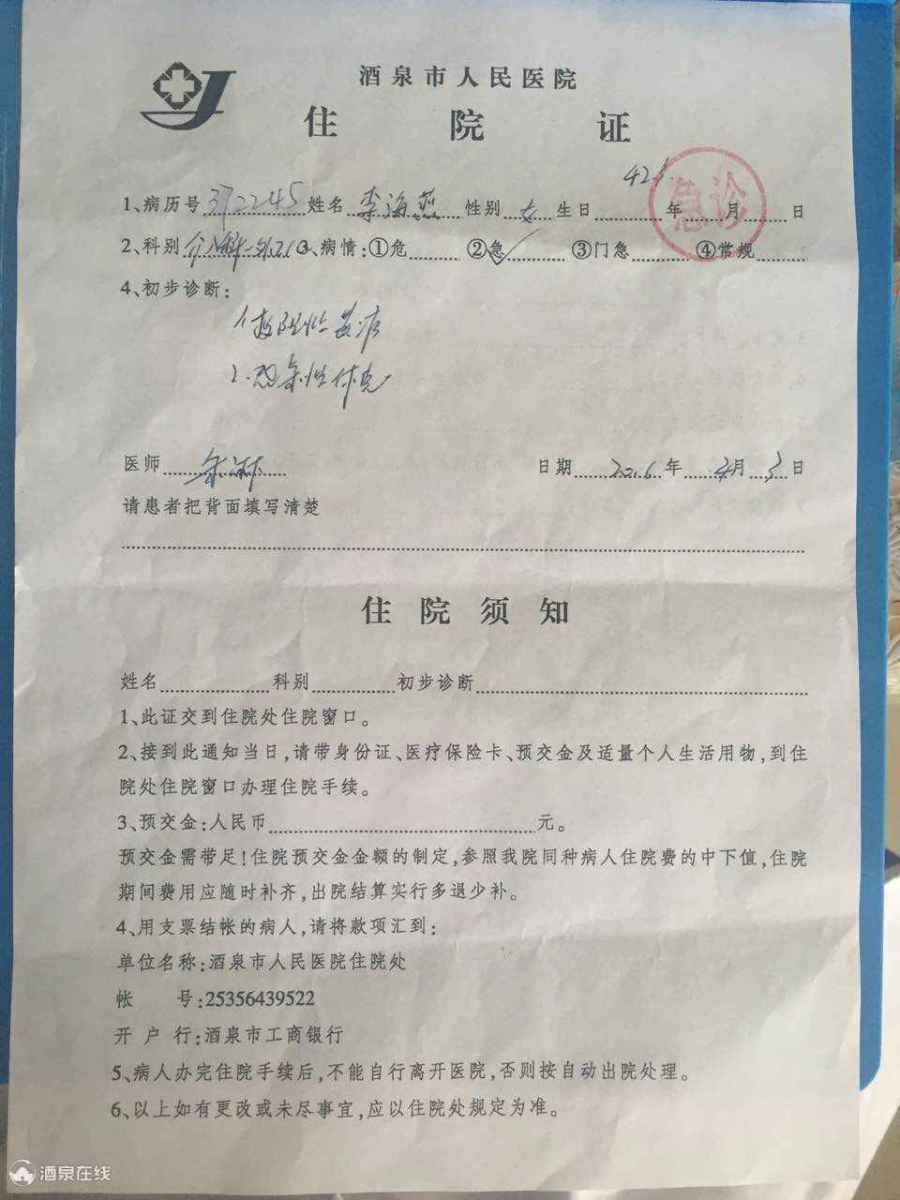 酒泉市人民医院
住院证
426.
急诊
1、病历号372245姓名李海燕性别女生日年月日
2、科别介入科 3、病情:①危②急✓③门急④常规
4、初步诊断:
1.梗阻性黄疸
2.感染性休克
医师 日期2016年4月3日
请患者把背面填写清楚
住院须知
姓名科别初步诊断
1、此证交到住院处住院窗口。
2、接到此通知当日,请带身份证、医疗保险卡、预交金及适量个人生活用物,到住
院处住院窗口办理住院手续。
3、预交金:人民币元。
预交金需带足!住院预交金金额的制定,参照我院同种病人住院费的中下值,住院
期间费用应随时补齐,出院结算实行多退少补。
4、用支票结帐的病人,请将款项汇到:
单位名称:酒泉市人民医院住院处
帐 号:25356439522
开户行:酒泉市工商银行
5、病人办完住院手续后,不能自行离开医院,否则按自动出院处理。
6、以上如有更改或未尽事宜,应以住院处规定为准。
酒泉在线